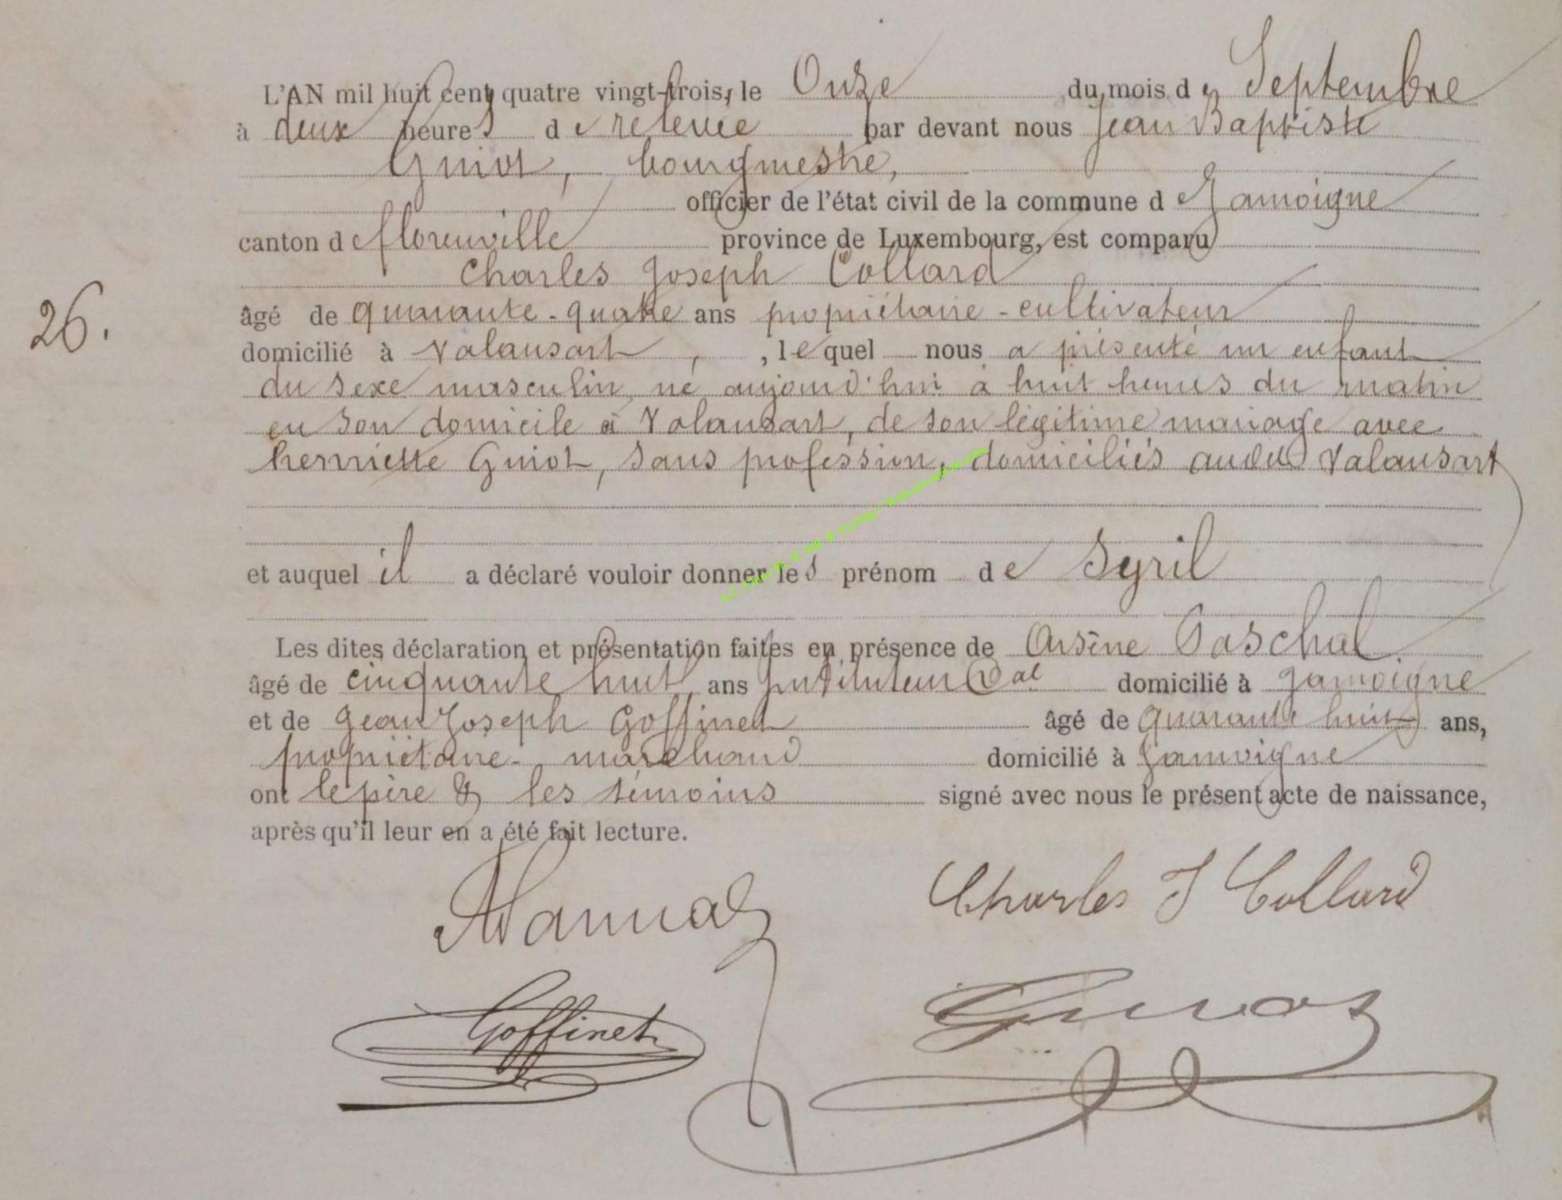 L'AN mil huit cent quatre vingt-trois, le Onze du mois de Septembre
à deux heures de relevée par devant nous Jean Baptiste
Guiot, bourgmestre,
officier de l'état civil de la commune de Jamoigne
canton de florenville province de Luxembourg, est comparu
Charles Joseph Collard
26.
âgé de quarante-quatre ans propriétaire-cultivateur
domicilié à Valansart, , lequel nous a présenté un enfant
du sexe masculin, né aujourd'hui à huit heures du matin
en son domicile à Valansart, de son légitime mariage avec
henriette Guiot, sans profession, domiciliés audit Valansart
et auquel il a déclaré vouloir donner les prénom de Syril
Les dites déclaration et présentation faites en présence de Arsène Paschal
âgé de cinquante huit ans Instituteur Cal domicilié à Jamoigne
et de Jean Joseph Goffinet âgé de quarante huit ans,
propriétaire-marchand domicilié à Jamoigne
ont le père & les témoins signé avec nous le présent acte de naissance,
après qu'il leur en a été fait lecture.
Charles J Collard
Goffinet
Guiot